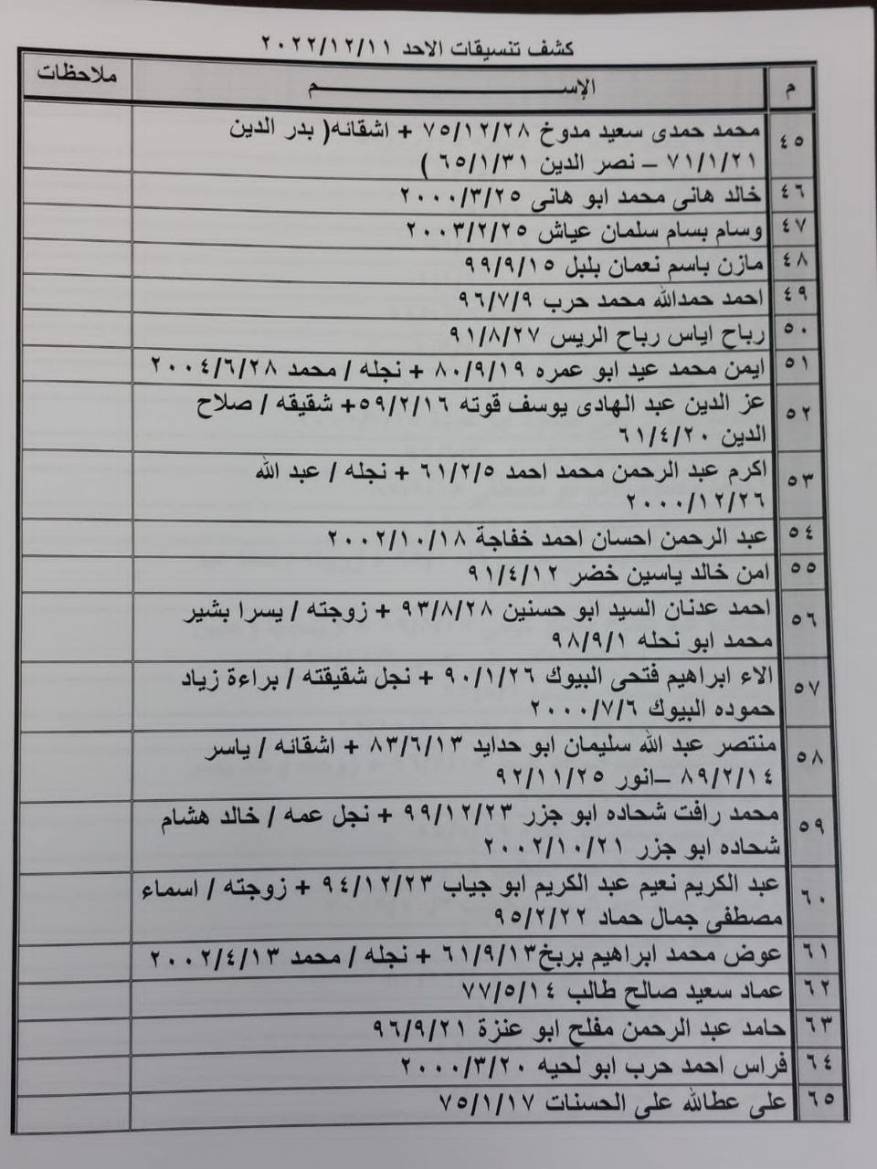 كشف تنسيقات الاحد ٢٠٢٢/١٢/١١
م الإســـــــــــــــــــــــــــــم ملاحظات
٤٥ محمد حمدى سعيد مدوخ ٧٥/١٢/٢٨ + اشقائه( بدر الدين
٧١/١/٢١ – نصر الدين ٦٥/١/٣١ )
٤٦ خالد هانى محمد ابو هانى ٢٠٠٠/٣/٢٥
٤٧ وسام بسام سلمان عياش ٢٠٠٣/٢/٢٥
٤٨ مازن باسم نعمان بلبل ٩٩/٩/١٥
٤٩ احمد حمدالله محمد حرب ٩٦/٧/٩
٥٠ رباح اياس رباح الريس ٩١/٨/٢٧
٥١ ايمن محمد عيد ابو عمره ٨٠/٩/١٩ + نجله / محمد ٢٠٠٤/٦/٢٨
٥٢ عز الدين عبد الهادى يوسف قوته ٥٩/٢/١٦+ شقيقه / صلاح
الدين ٦١/٤/٢٠
٥٣ اكرم عبد الرحمن محمد احمد ٦١/٢/٥ + نجله / عبد الله
٢٠٠٠/١٢/٢٦
٥٤ عبد الرحمن احسان احمد خفاجة ٢٠٠٢/١٠/١٨
٥٥ امن خالد ياسين خضر ٩١/٤/١٢
٥٦ احمد عدنان السيد ابو حسنين ٩٣/٨/٢٨ + زوجته / يسرا بشير
محمد ابو نحله ٩٨/٩/١
٥٧ الاء ابراهيم فتحى البيوك ٩٠/١/٢٦ + نجل شقيقته / براءة زياد
حموده البيوك ٢٠٠٠/٧/٦
٥٨ منتصر عبد الله سليمان ابو حدايد ٨٣/٦/١٣ + اشقائه / ياسر
٨٩/٢/١٤ –انور ٩٢/١١/٢٥
٥٩ محمد رافت شحاده ابو جزر ٩٩/١٢/٢٣ + نجل عمه / خالد هشام
شحاده ابو جزر ٢٠٠٢/١٠/٢١
٦٠ عبد الكريم نعيم عبد الكريم ابو جياب ٩٤/١٢/٢٣ + زوجته / اسماء
مصطفى جمال حماد ٩٥/٢/٢٢
٦١ عوض محمد ابراهيم بربخ٦١/٩/١٣ + نجله / محمد ٢٠٠٢/٤/١٣
٦٢ عماد سعيد صالح طالب ٧٧/٥/١٤
٦٣ حامد عبد الرحمن مفلح ابو عنزة ٩٦/٩/٢١
٦٤ فراس احمد حرب ابو لحيه ٢٠٠٠/٣/٢٠
٦٥ على عطالله على الحسنات ٧٥/١/١٧